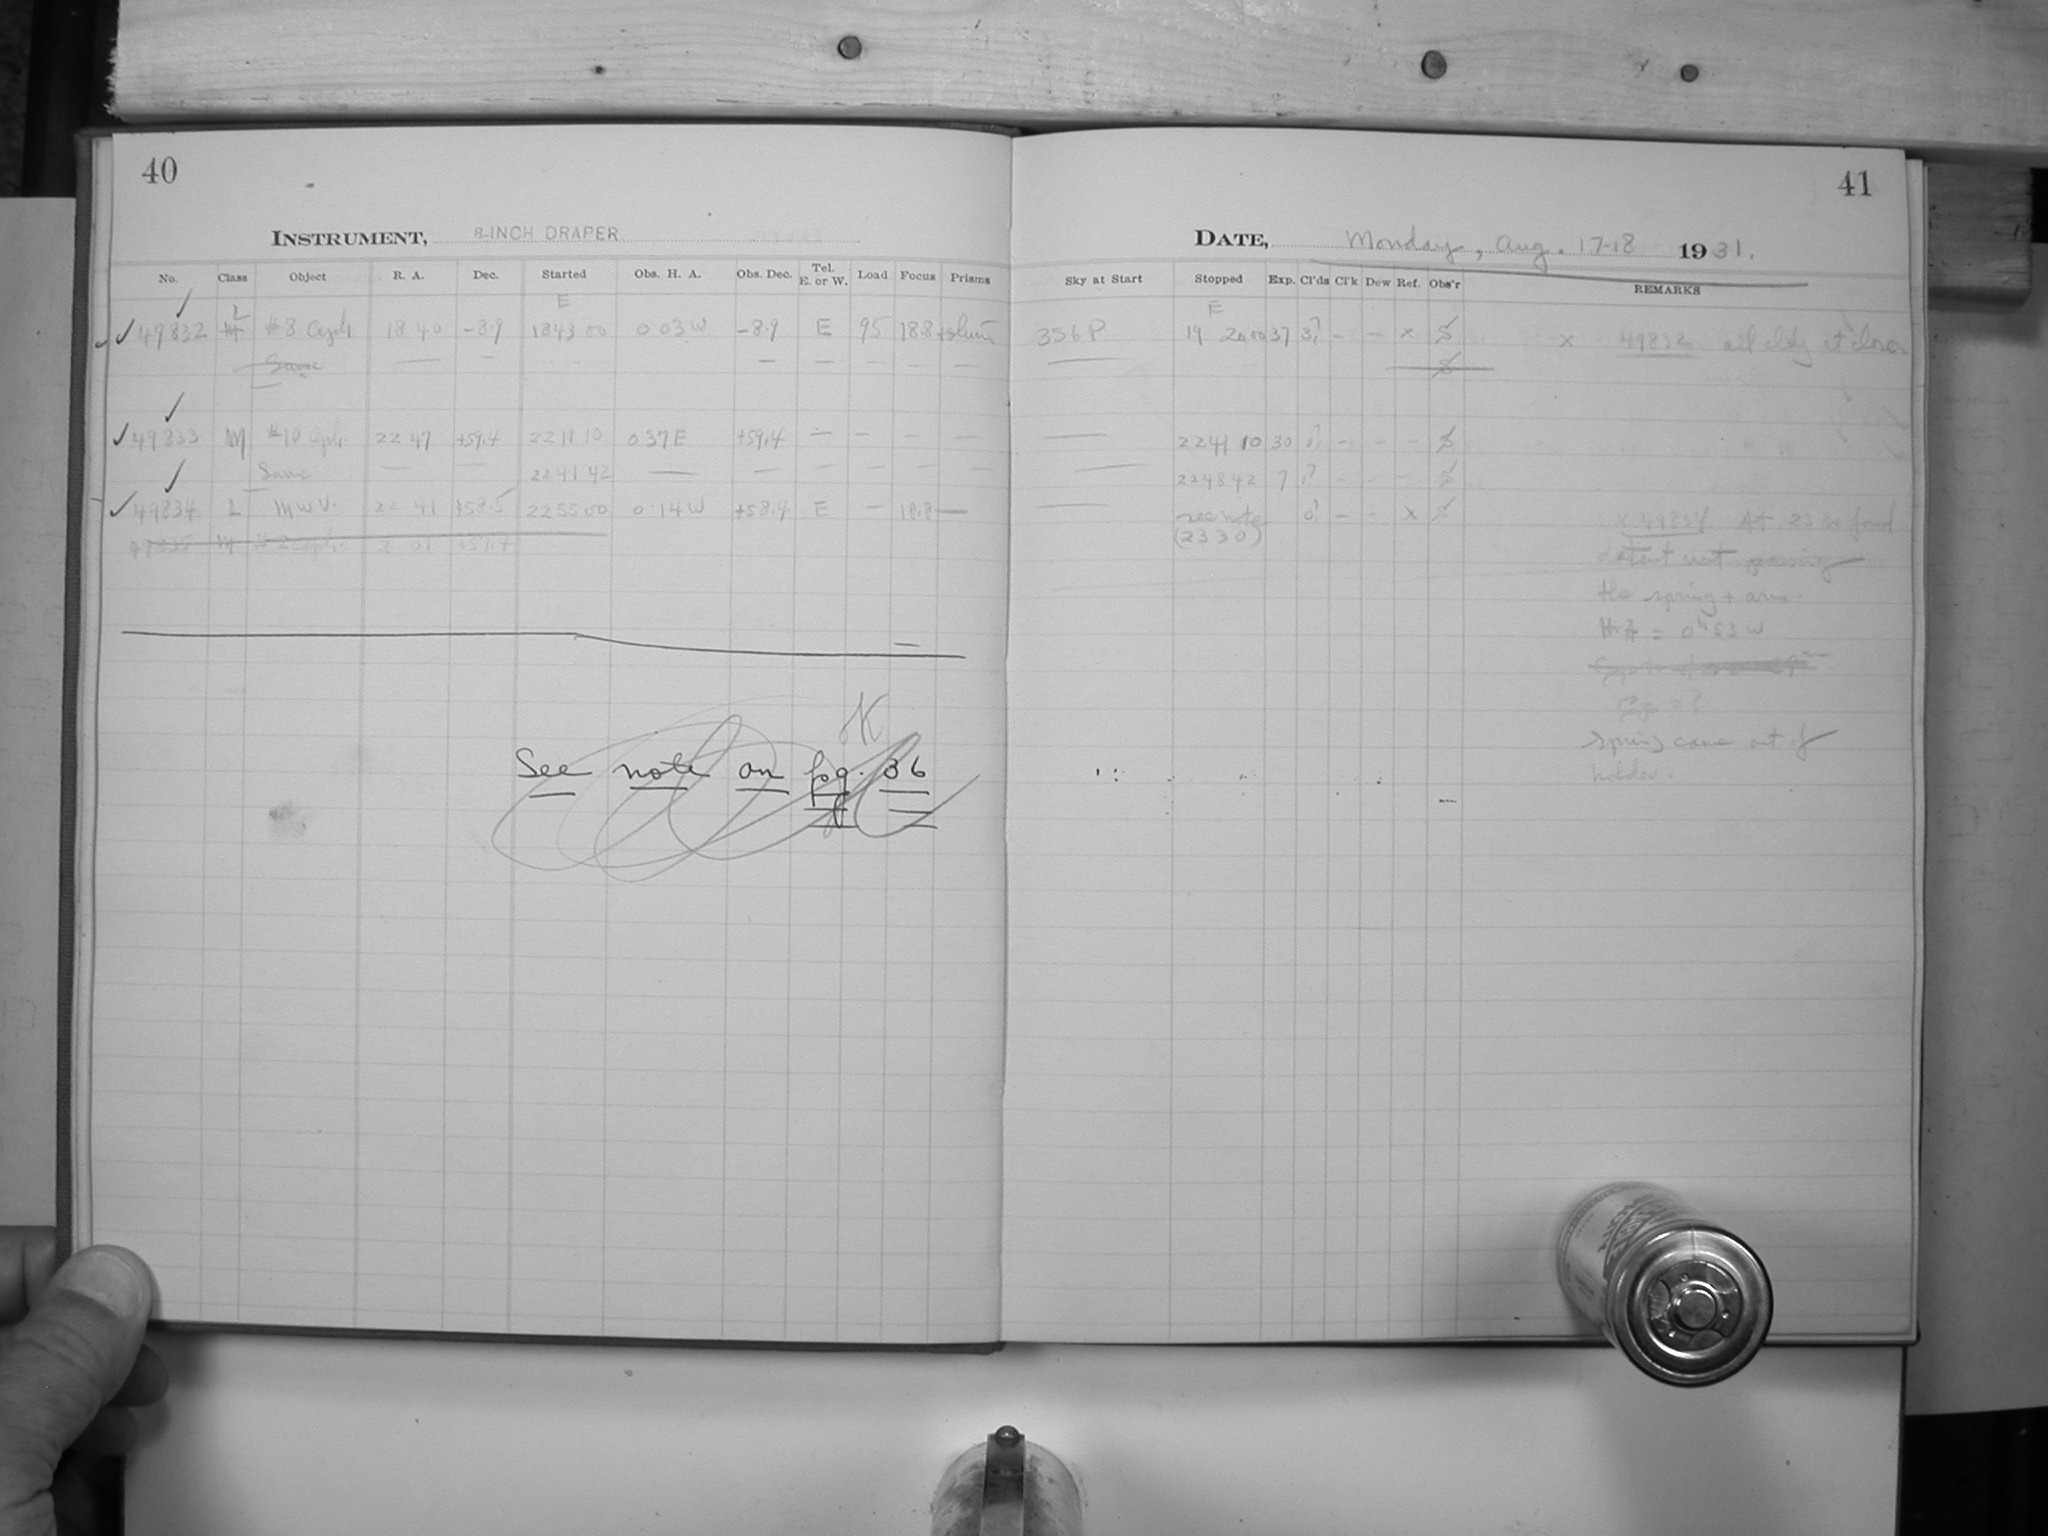 40
INSTRUMENT, 8-INCH DRAPER
No. Class Object R. A. Dec. Started Obs. H. A. Obs. Dec. Tel. E. or W. Load Focus Prisms
E
L
49832 M #8 Ceph 18 40 -8.9 18 43 00 0 03 W -8.9 E 95 18.8
Same — — — — — — —
49833 M #10 Ceph. 22 47 +59.4 22 11 10 0 37 E +59.4 — — — —
Same — — 22 41 42 — — — — — —
49834 L MWV. 22 41 +58.5 22 55 00 0 14 W +58.4 E — 18.8 —
OK
See note on pg. 36
41
DATE, Monday, Aug. 17-18 1931.
Sky at Start Stopped Exp. Cl'ds Cl'k Dew Ref. Obs'r REMARKS
E
356 P 19 20 00 37 3? - - x x 49832 all cldy at close
— 22 41 10 30 0? - - -
— 22 48 42 7 0? - - -
— see note 0? - - x x 49834 At 23 30 found
(23 30)
detent not passing
the spring + arm.
HA = 0h 53 W
Exp = ?
spring came out of
holder.